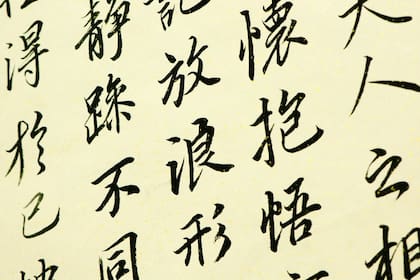 夫人之相
懷抱悟
放浪形
靜躁不同
得於己